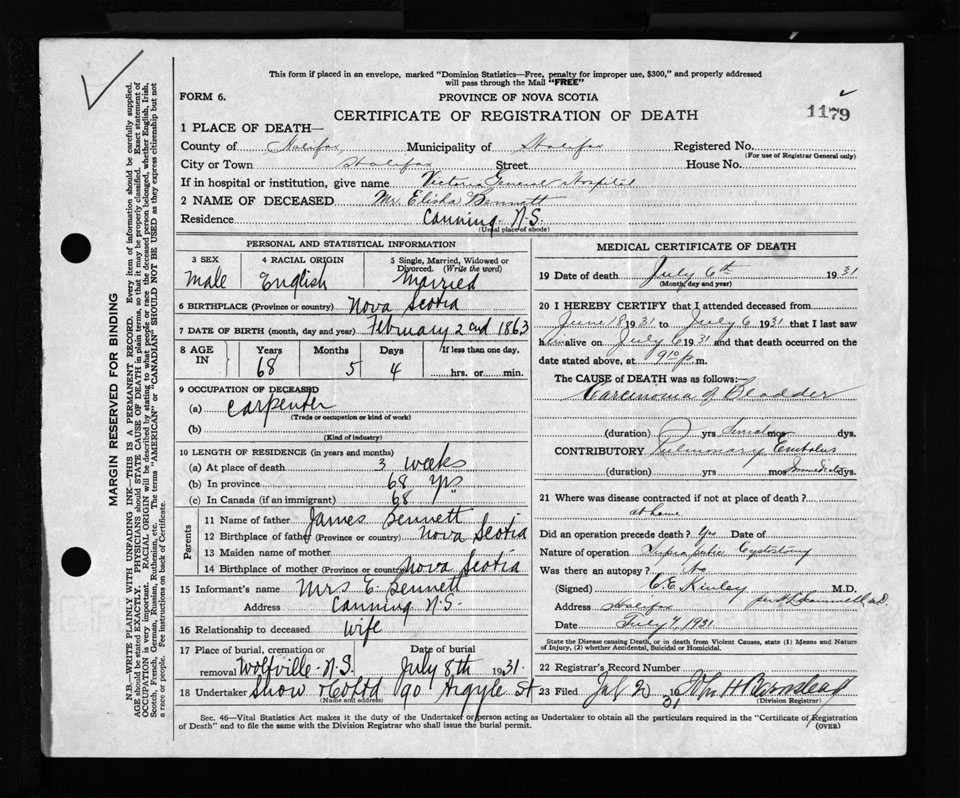 This form if placed in an envelope, marked "Dominion Statistics—Free, penalty for improper use, $300," and properly addressed
will pass through the Mail "FREE"
FORM 6.
PROVINCE OF NOVA SCOTIA
CERTIFICATE OF REGISTRATION OF DEATH
1179
1 PLACE OF DEATH—
County of Halifax Municipality of Halifax Registered No.
(For use of Registrar General only)
City or Town Halifax Street House No.
If in hospital or institution, give name Victoria General Hospital
2 NAME OF DECEASED Mr. Elisha Bennett
Residence Canning. N.S.
(Usual place of abode)
PERSONAL AND STATISTICAL INFORMATION
3 SEX 4 RACIAL ORIGIN 5 Single, Married, Widowed or
Divorced. (Write the word)
Male English Married
6 BIRTHPLACE (Province or country) Nova Scotia
7 DATE OF BIRTH (month, day and year) February 2nd 1863
8 AGE IN Years Months Days If less than one day.
68 5 4 hrs. or min.
9 OCCUPATION OF DECEASED
(a) Carpenter
(Trade or occupation or kind of work)
(b)
(Kind of industry)
10 LENGTH OF RESIDENCE (in years and months)
(a) At place of death 3 weeks
(b) In province 68 yrs
(c) In Canada (if an immigrant) 68 "
Parents
11 Name of father James Bennett
12 Birthplace of father (Province or country) Nova Scotia
13 Maiden name of mother
14 Birthplace of mother (Province or country) Nova Scotia
15 Informant's name Mrs E. Bennett
Address Canning N.S.
16 Relationship to deceased Wife
17 Place of burial, cremation or Date of burial
removal Wolfville. N.S. July 8th 1931.
18 Undertaker Snow & Co Ltd 90 Argyle St
(Name and address)
MEDICAL CERTIFICATE OF DEATH
19 Date of death July 6th 1931
(Month, day and year)
20 I HEREBY CERTIFY that I attended deceased from
June 18 1931 to July 6 1931 that I last saw
him alive on July 6 1931 and that death occurred on the
date stated above, at 9 10 p. m.
The CAUSE of DEATH was as follows:—
Carcinoma of Bladder
(duration) yrs mos dys.
CONTRIBUTORY Pulmonary Embolus
(duration) yrs mos dys.
21 Where was disease contracted if not at place of death?
at home
Did an operation precede death? Yes Date of
Nature of operation Supra pubic Cystotomy
Was there an autopsy? No
(Signed) C.E. Kinley M.D.
Address Halifax
Date July 7, 1931
State the Disease causing Death, or in death from Violent Causes, state (1) Means and Nature
of Injury, (2) whether Accidental, Suicidal or Homicidal.
22 Registrar's Record Number
23 Filed 31 John H Barnstead
(Division Registrar)
Sec. 46—Vital Statistics Act makes it the duty of the Undertaker or person acting as Undertaker to obtain all the particulars required in the "Certificate of Registration
of Death" and to file the same with the Division Registrar who shall issue the burial permit.
(OVER)
MARGIN RESERVED FOR BINDING
N.B.—WRITE PLAINLY WITH UNFADING INK—THIS IS A PERMANENT RECORD. Every item of information should be carefully supplied.
AGE should be stated EXACTLY. PHYSICIANS should STATE CAUSE OF DEATH in plain terms, so that it may be properly classified. Exact statement of
OCCUPATION is very important. RACIAL ORIGIN will be described by stating to what people or race the deceased person belonged, whether English, Irish,
Scotch, French, German, Russian, Ruthenian, etc. The terms "AMERICAN" or "CANADIAN" SHOULD NOT BE USED as they express citizenship but not
a race or people. See instructions on back of Certificate.